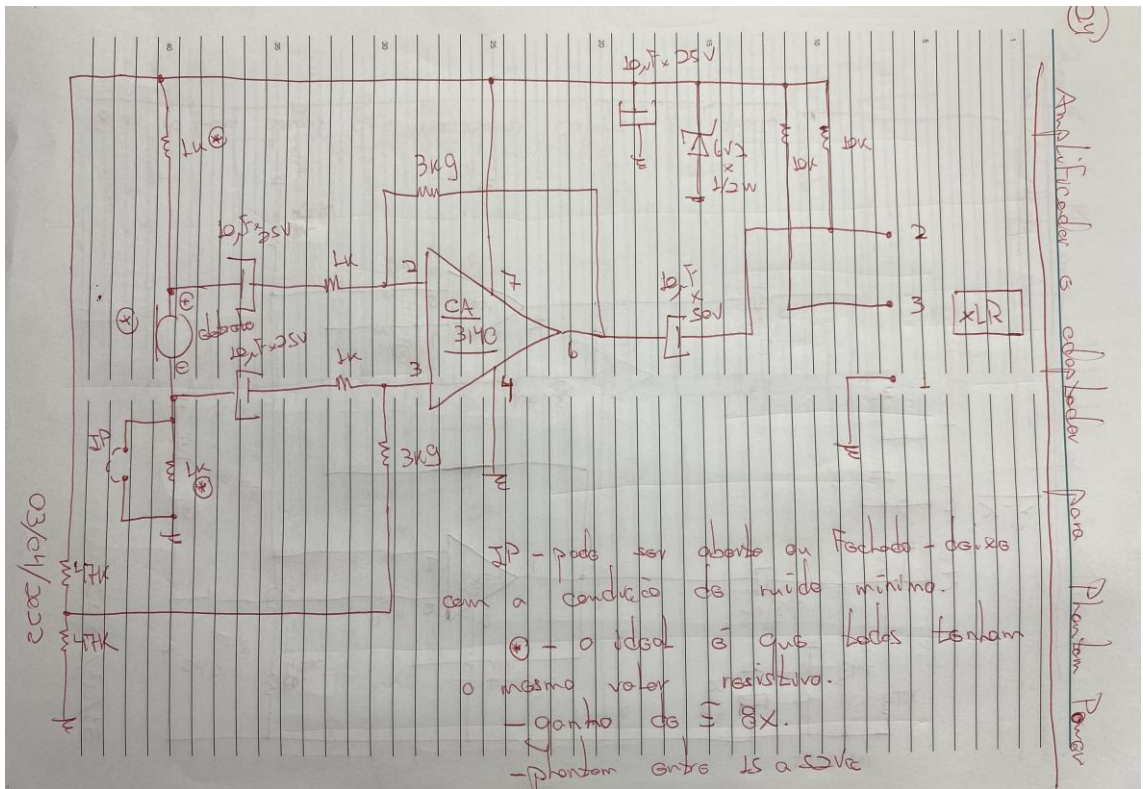 24
Amplificador e adaptador para Phantom Power
10µF x 25V
1K *
3K9
6V2
x
1/2W
10K
10K
10µF x 25V
1K
2
7
CA
3140
6
10µF
x
50V
2
3
XLR
*
+
-
10µF x 25V
1K
3
4
1
JP
1K
*
3K9
47K
47K
03/04/2022
JP - pode ser aberto ou Fechado - deixe
com a condição de ruído mínimo.
* - o ideal é que todos tenham
o mesmo valor resistivo.
- ganho de ≅ 8x.
- phantom entre 15 a 52Vcc